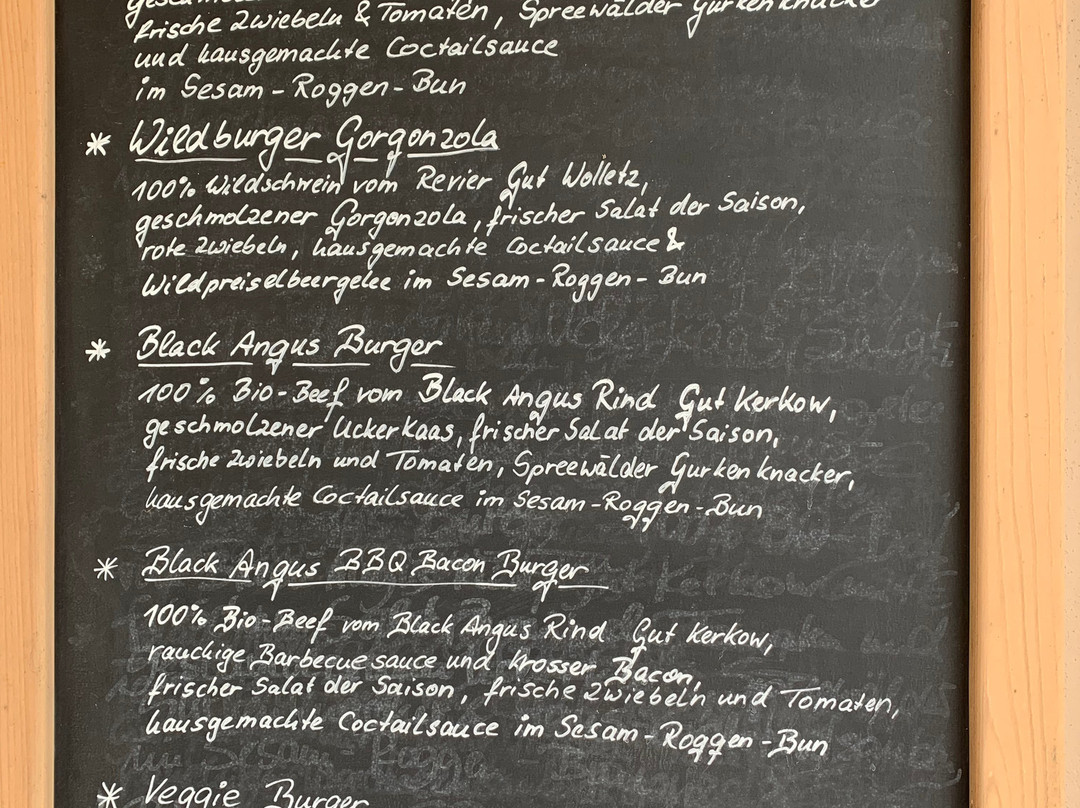 frische Zwiebeln & Tomaten, Spreewälder Gurkenknacker
und hausgemachte Coctailsauce
im Sesam-Roggen-Bun
* Wildburger Gorgonzola
100% Wildschwein vom Revier Gut Wolletz,
geschmolzener Gorgonzola, frischer Salat der Saison,
rote Zwiebeln, hausgemachte Coctailsauce &
Wildpreiselbeergelee im Sesam-Roggen-Bun
* Black Angus Burger
100% Bio-Beef vom Black Angus Rind Gut Kerkow,
geschmolzener UckerKaas, frischer Salat der Saison,
frische Zwiebeln und Tomaten, Spreewälder Gurkenknacker,
hausgemachte Coctailsauce im Sesam-Roggen-Bun
* Black Angus BBQ Bacon Burger
100% Bio-Beef vom Black Angus Rind Gut Kerkow,
rauchige Barbecuesauce und krosser Bacon,
frischer Salat der Saison, frische Zwiebeln und Tomaten,
hausgemachte Coctailsauce im Sesam-Roggen-Bun
* Veggie Burger